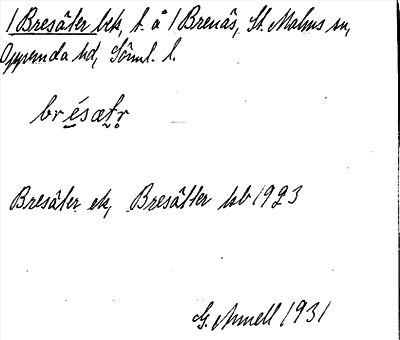 1 Bresäter brk, t. å 1 Brenäs, St. Malms sn,
Oppunda hd, Södml. l.
br ésætr
Bresäter ek, Bresätter kb 1923
G. Amell 1931